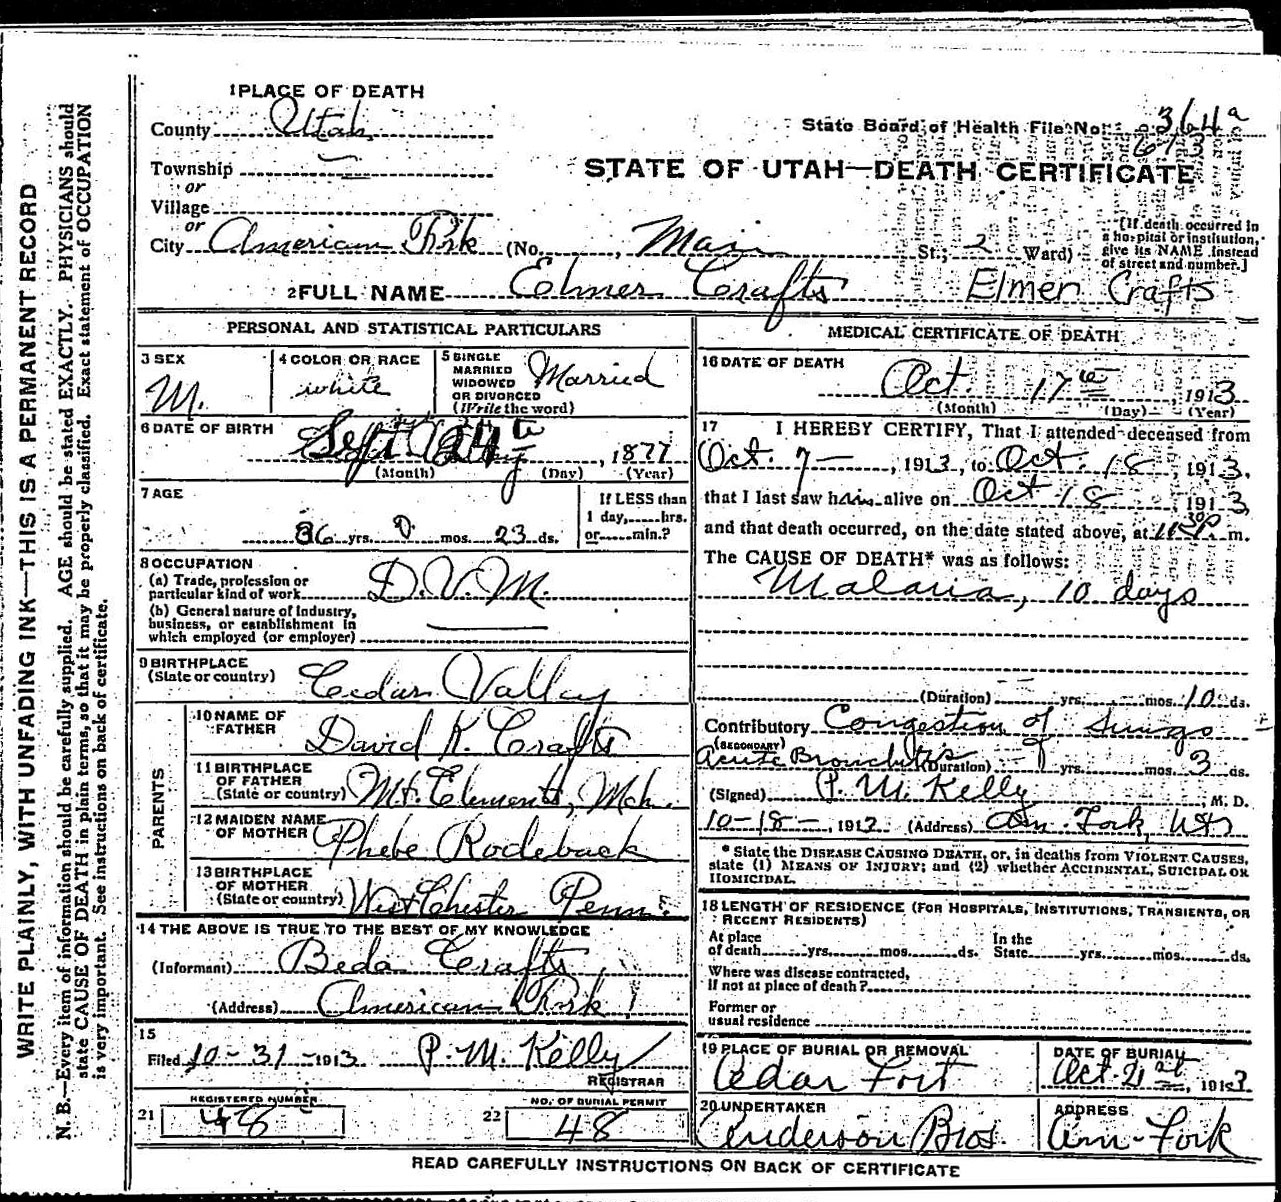 WRITE PLAINLY, WITH UNFADING INK—THIS IS A PERMANENT RECORD
N. B.—Every item of information should be carefully supplied. AGE should be stated EXACTLY. PHYSICIANS should
state CAUSE OF DEATH in plain terms, so that it may be properly classified. Exact statement of OCCUPATION
is very important. See instructions on back of certificate.
1 PLACE OF DEATH
County Utah
State Board of Health File No. 364a
Township
or
Village
or
STATE OF UTAH—DEATH CERTIFICATE
City American Fork (No. , Main St.; 2 Ward)
[If death occurred in
a hospital or institution,
give its NAME instead
of street and number.]
2 FULL NAME Elmer Crafts Elmer Crafts
PERSONAL AND STATISTICAL PARTICULARS
3 SEX
M.
4 COLOR OR RACE
white
5 SINGLE
MARRIED
WIDOWED
OR DIVORCED
(Write the word)
Married
6 DATE OF BIRTH
Sept 24th, 1877
(Month) (Day) (Year)
7 AGE
36 yrs. 0 mos. 23 ds.
If LESS than
1 day, hrs.
or min.?
8 OCCUPATION
(a) Trade, profession or
particular kind of work D.V.M.
(b) General nature of industry,
business, or establishment in
which employed (or employer)
9 BIRTHPLACE
(State or country) Cedar Valley
PARENTS
10 NAME OF
FATHER David K. Crafts
11 BIRTHPLACE
OF FATHER
(State or country) Mt. Clements, Mch.
12 MAIDEN NAME
OF MOTHER Phebe Rodeback
13 BIRTHPLACE
OF MOTHER
(State or country) West Chester Penn.
14 THE ABOVE IS TRUE TO THE BEST OF MY KNOWLEDGE
(Informant) Beda Crafts
(Address) American Fork
15
Filed 10-31-1913 P. M. Kelly
REGISTRAR
21 REGISTERED NUMBER
48
22 NO. OF BURIAL PERMIT
48
MEDICAL CERTIFICATE OF DEATH
16 DATE OF DEATH
Oct. 17th, 1913
(Month) (Day) (Year)
17 I HEREBY CERTIFY, That I attended deceased from
Oct. 7—, 1913, to Oct. 18, 1913,
that I last saw him alive on Oct 18 1913,
and that death occurred, on the date stated above, at 1130P. m.
The CAUSE OF DEATH* was as follows:
Malaria, 10 days
(Duration) yrs. mos. 10 ds.
Contributory Congestion of Lungs
(SECONDARY)
Acute Bronchitis (Duration) yrs. mos. 3 ds.
(Signed) P. M. Kelly, M. D.
10-18-, 1913 (Address) Am. Fork, Utah
* State the DISEASE CAUSING DEATH, or, in deaths from VIOLENT CAUSES,
state (1) MEANS OF INJURY; and (2) whether ACCIDENTAL, SUICIDAL OR
HOMICIDAL.
18 LENGTH OF RESIDENCE (FOR HOSPITALS, INSTITUTIONS, TRANSIENTS, OR
RECENT RESIDENTS)
At place
of death yrs. mos. ds.
In the
State yrs. mos. ds.
Where was disease contracted,
If not at place of death?
Former or
usual residence
19 PLACE OF BURIAL OR REMOVAL
Cedar Fort
DATE OF BURIAL
Oct. 21st, 1913
20 UNDERTAKER
Anderson Bros.
ADDRESS
Am-Fork
READ CAREFULLY INSTRUCTIONS ON BACK OF CERTIFICATE